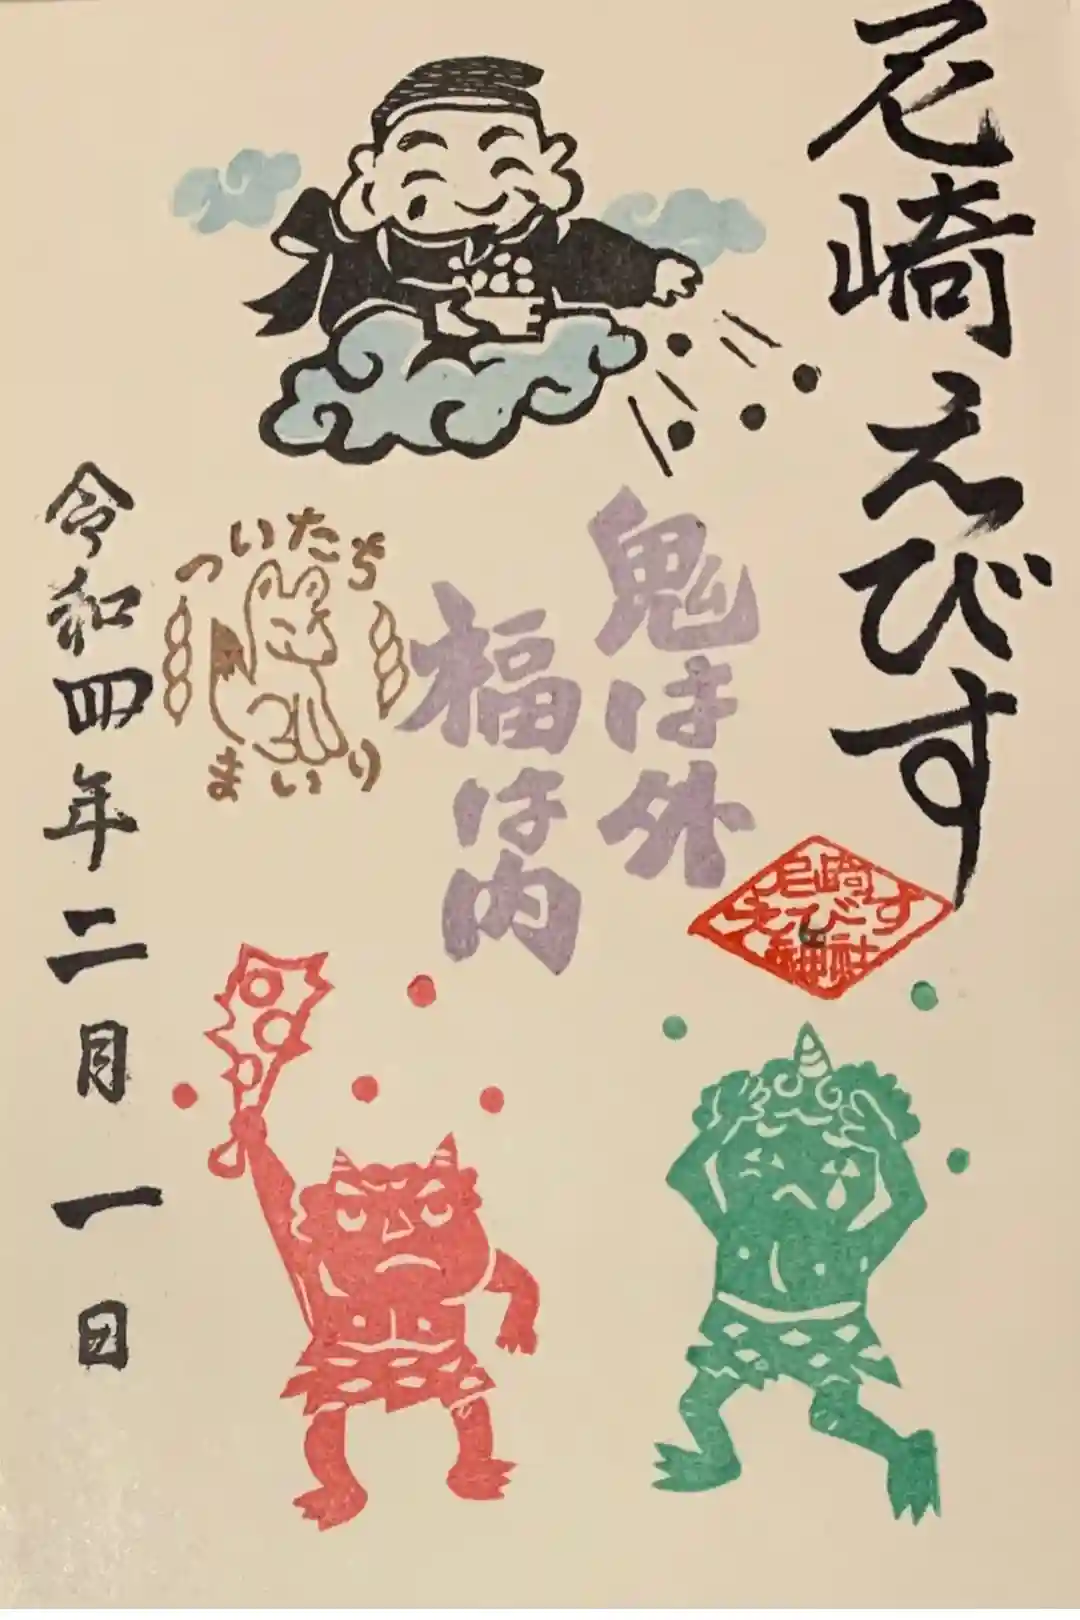 尼崎えびす
尼崎えびす神社
鬼は外
福は内
ついたち
まいり
令和四年二月一日